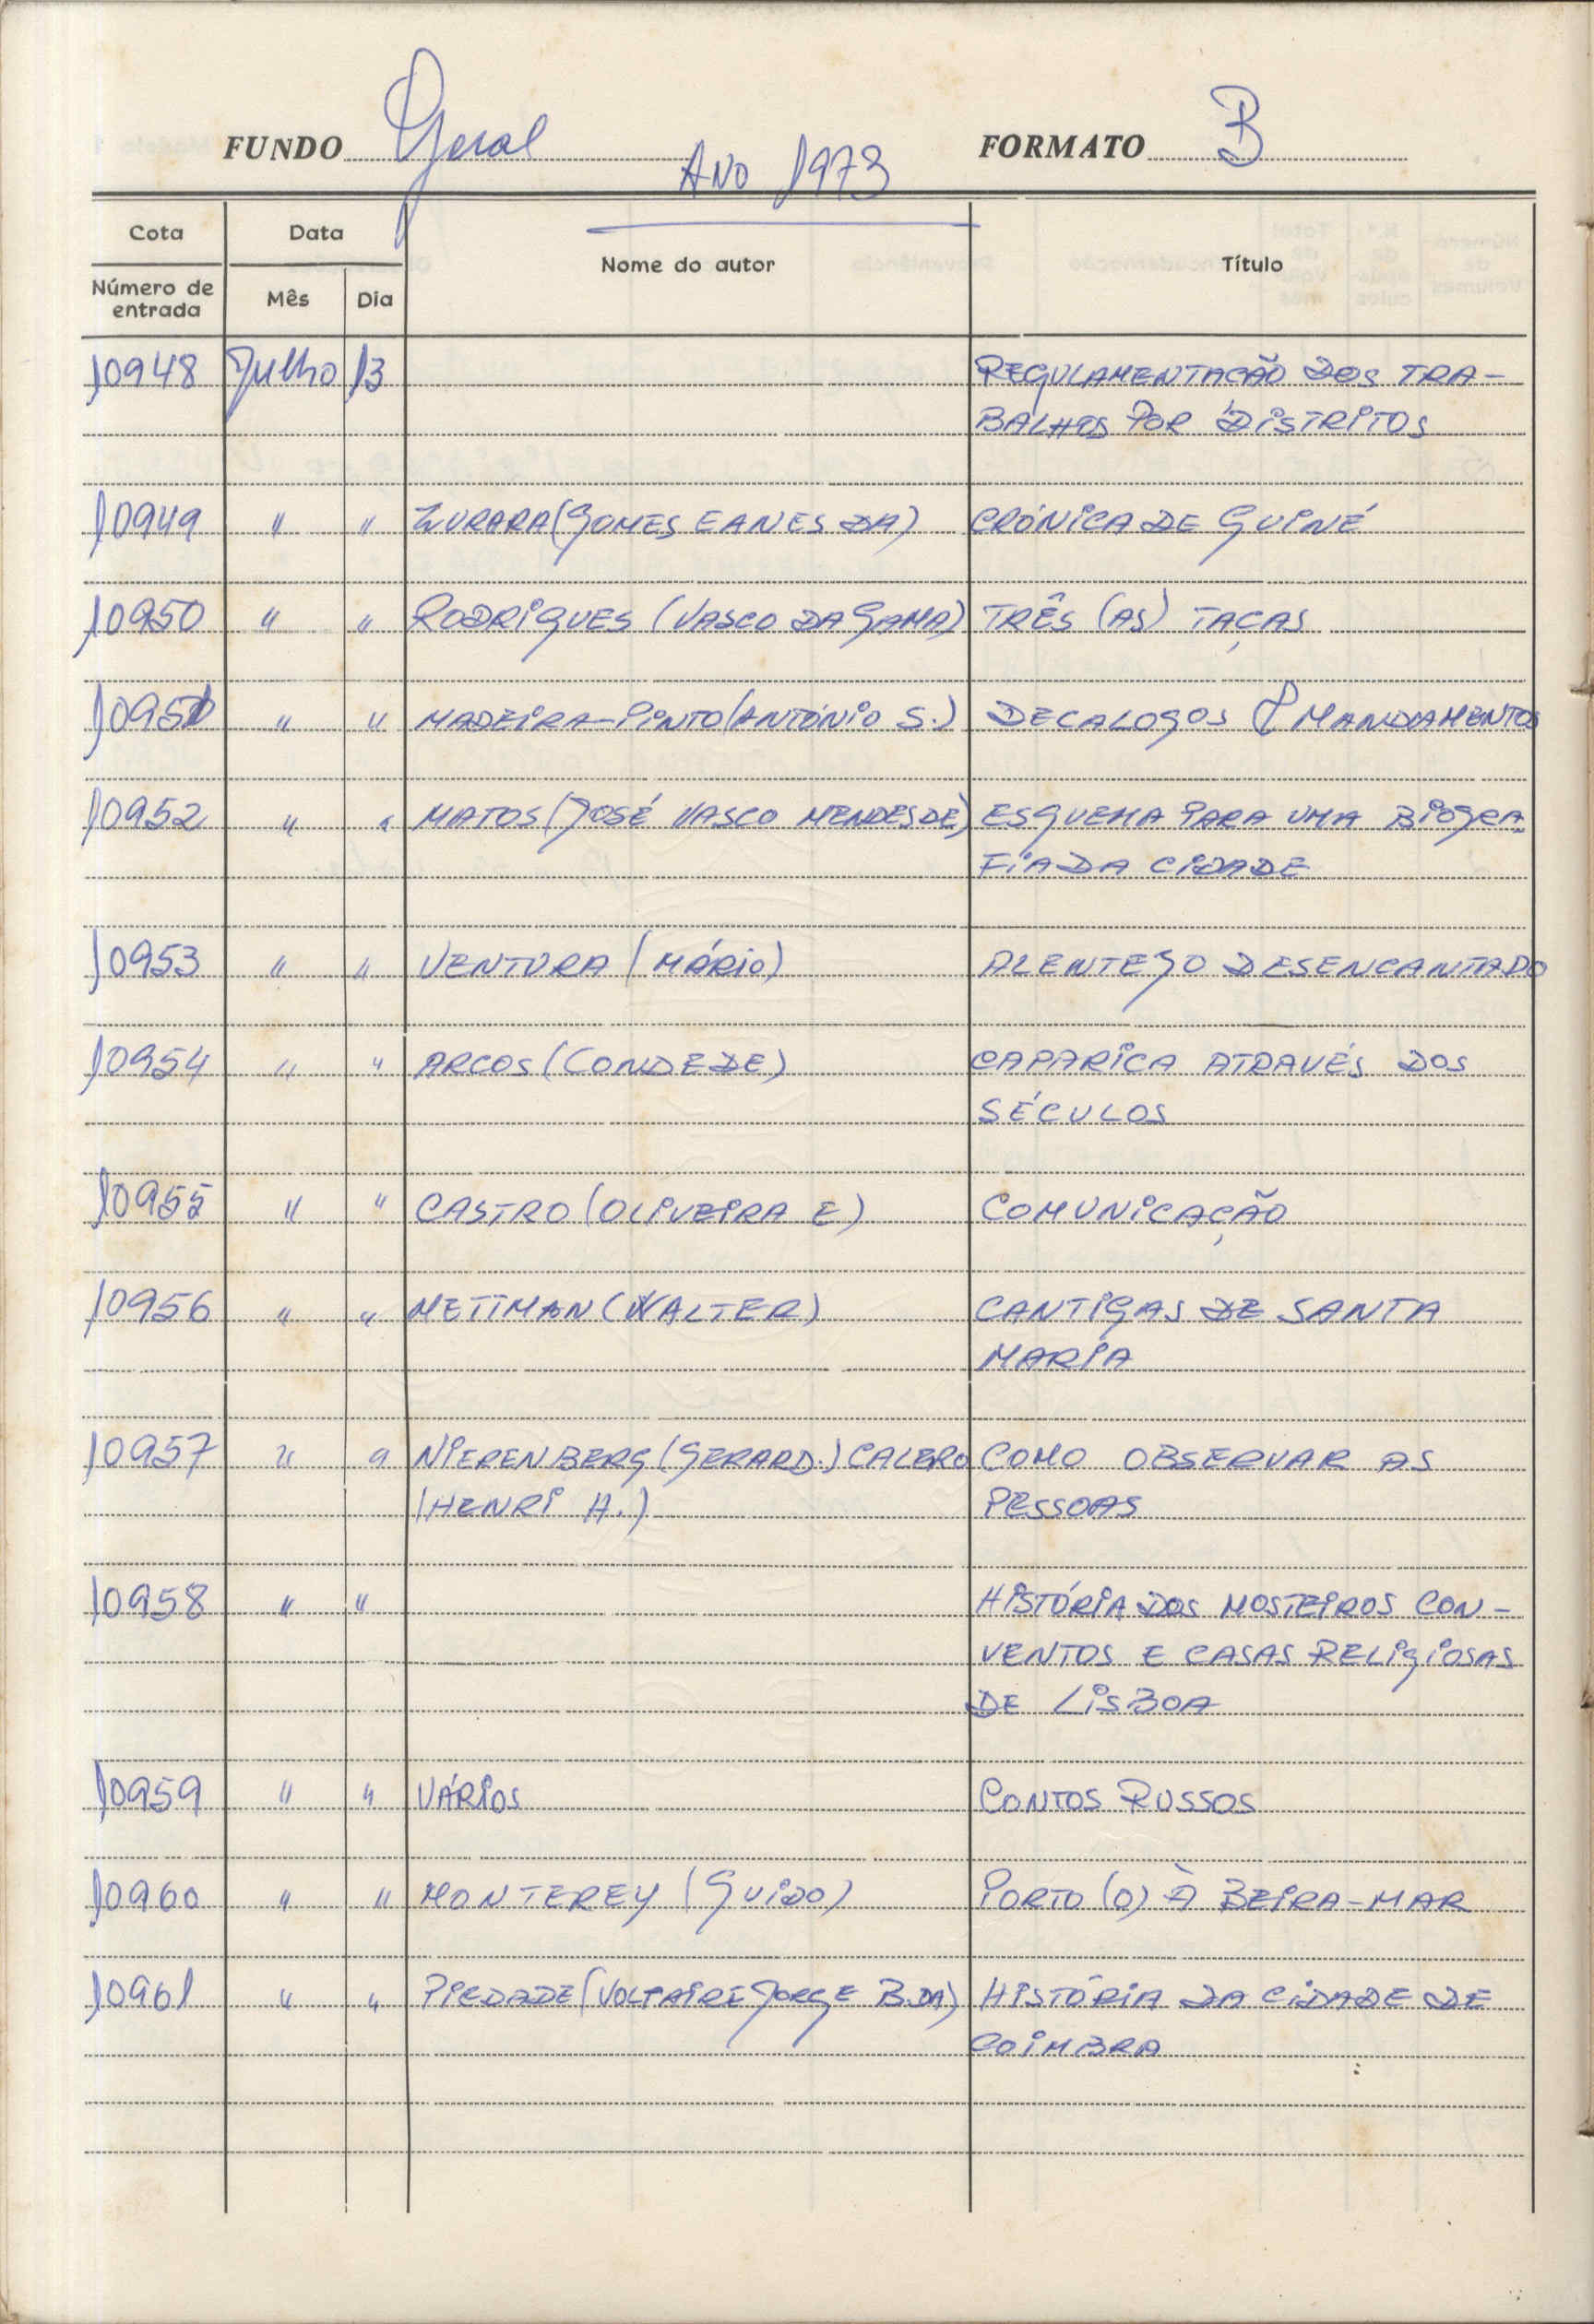 FUNDO Geral FORMATO B
ANO 1973
Cota Data Nome do autor Título
Número de entrada Mês Dia
10948 Julho 13 REGULAMENTAÇÃO DOS TRA-
BALHOS POR DISTRITOS
10949 " " ZURARA (GOMES EANES DA) CRÓNICA DE GUINÉ
10950 " " RODRIGUES (VASCO DA GAMA) TRÊS (AS) TAÇAS
10951 " " MADEIRA-PINTO (ANTÓNIO S.) DECALOGOS & MANDAMENTOS
10952 " " MATOS (JOSÉ VASCO MENDES DE) ESQUEMA PARA UMA BIOGRA
FIA DA CIDADE
10953 " " VENTURA (MÁRIO) ALENTEJO DESENCANTADO
10954 " " ARCOS (CONDE DE) CAPARICA ATRAVÉS DOS
SÉCULOS
10955 " " CASTRO (OLIVEIRA E) COMUNICAÇÃO
10956 " " METTMAN (WALTER) CANTIGAS DE SANTA
MARIA
10957 " " NIERENBERG (GERARD.) CALERO COMO OBSERVAR AS
(HENRI H.) PESSOAS
10958 " " HISTÓRIA DOS MOSTEIROS CON-
VENTOS E CASAS RELIGIOSAS
DE LISBOA
10959 " " VÁRIOS CONTOS RUSSOS
10960 " " MONTEREY (GUIDO) PORTO (O) À BEIRA-MAR
10961 " " PIEDADE (VOLTAIRE JORGE B. DA) HISTÓRIA DA CIDADE DE
COIMBRA